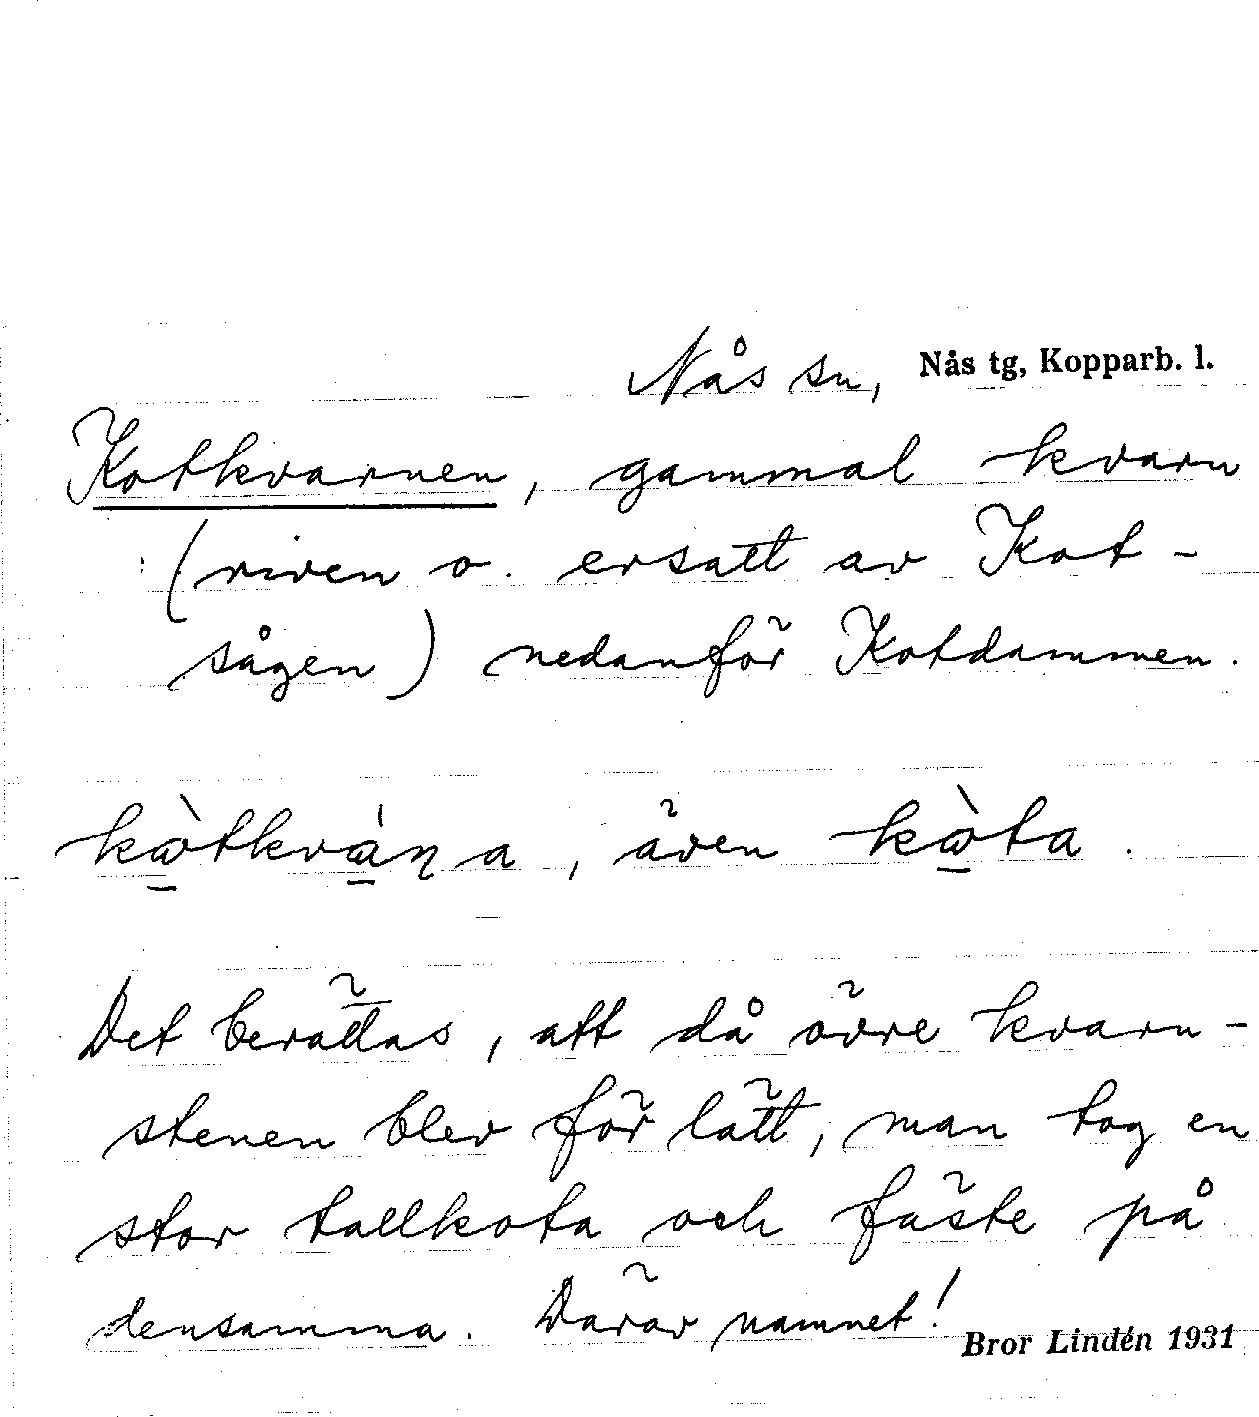 Nås sn, Nås tg, Kopparb. l.
Kotkvarnen, gammal kvarn
(riven o. ersatt av Kot-
sågen) nedanför Kotdammen.
kὼtkvàṇa, även kὼta.
Det berättas, att då övre kvarn-
stenen blev för lätt, man tog en
stor tallkota och fäste på
densamma. Därav namnet!
Bror Lindén 1931